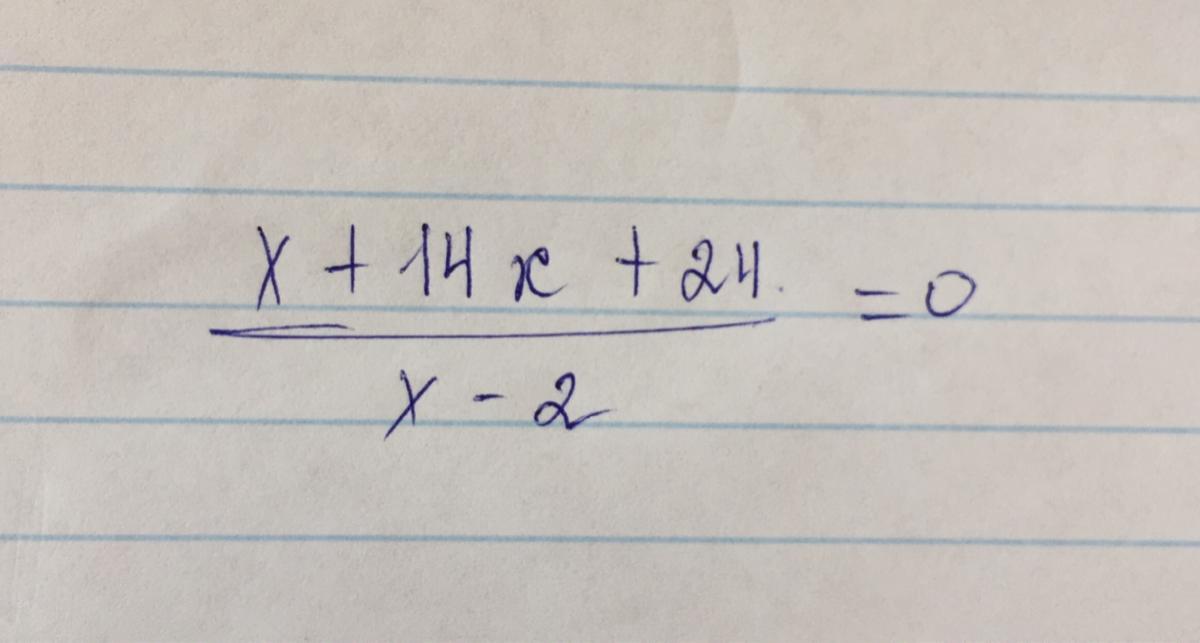 x + 14x + 24 = 0
x - 2